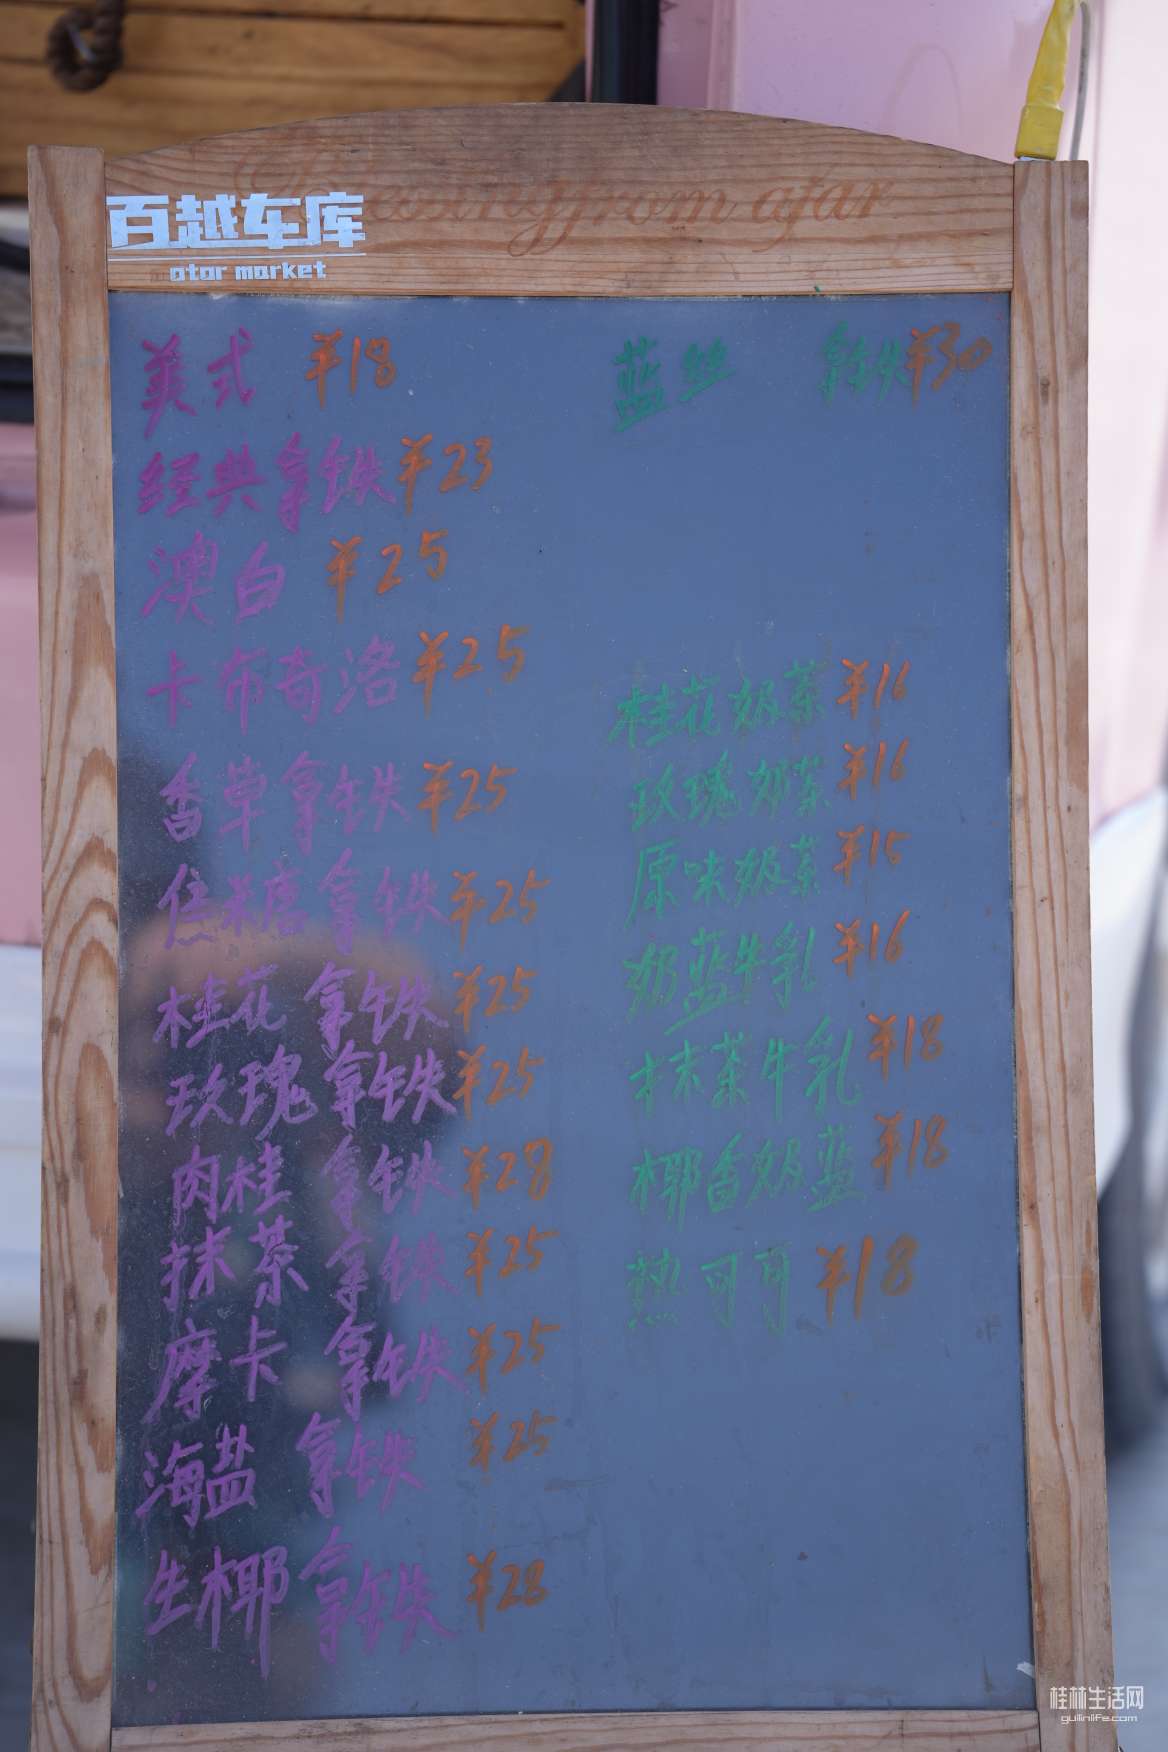 百越车库
atar market
from afar
美式 ¥18
经典拿铁 ¥23
澳白 ¥25
卡布奇洛 ¥25
香草拿铁 ¥25
焦糖拿铁 ¥25
桂花 拿铁 ¥25
玫瑰拿铁 ¥25
肉桂 拿铁 ¥28
抹茶 拿铁 ¥25
摩卡 拿铁 ¥25
海盐 拿铁 ¥25
生椰拿铁 ¥28
蓝丝 拿铁¥30
桂花奶茶 ¥16
玫瑰奶茶 ¥16
原味奶茶 ¥15
奶蓝牛乳 ¥16
抹茶牛乳 ¥18
椰香奶蓝 ¥18
热可可 ¥18
桂林生活网
guilinlife.com